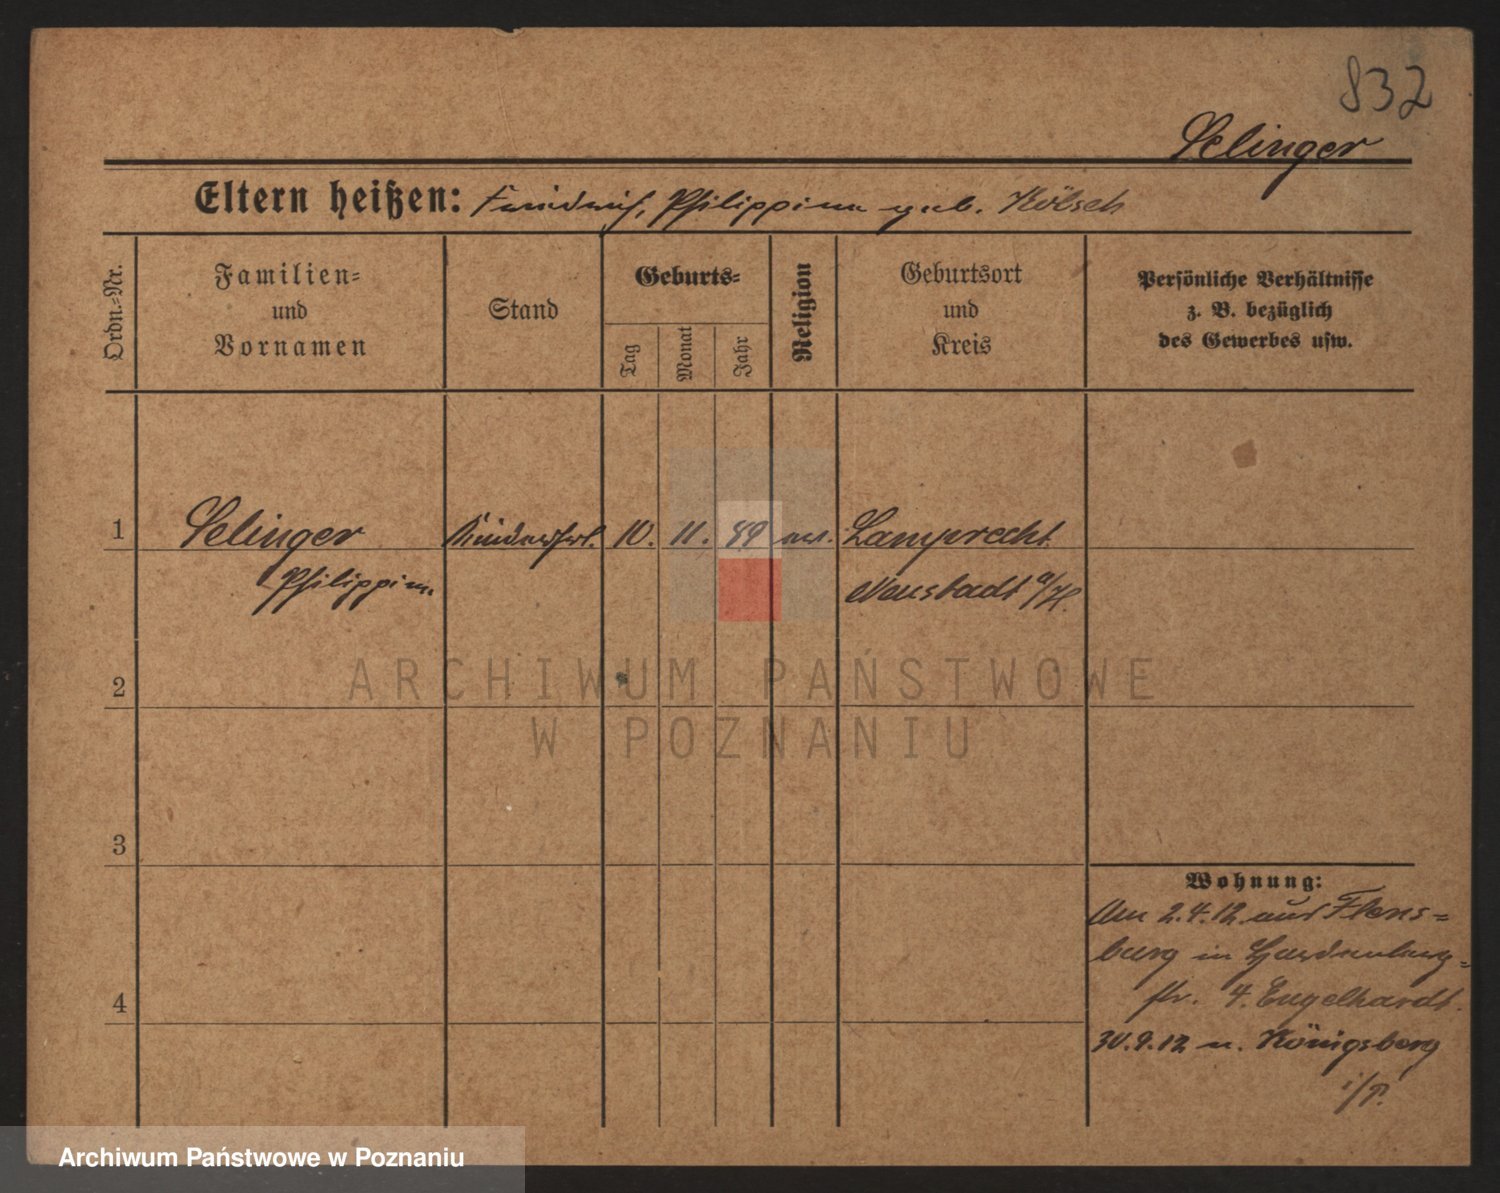 832
Selinger
Eltern heißen: Friedrich, Philippine geb. Kölsch
Ordn.-Nr.
Familien-
und
Vornamen
Stand
Geburts-
Tag
Monat
Jahr
Religion
Geburtsort
und
Kreis
Persönliche Verhältnisse
z. B. bezüglich
des Gewerbes usw.
1
Selinger
Philippine
Kinderfrl.
10.
11.
89
ev.
Lamprecht
Neustadt a/H.
2
ARCHIWUM PAŃSTWOWE
W POZNANIU
3
4
Wohnung:
Am 2.4.12 aus Flens=
burg in Hardenberg=
str. 4. Engelhardt.
30.9.12 n. Königsberg
i/P.
Archiwum Państwowe w Poznaniu